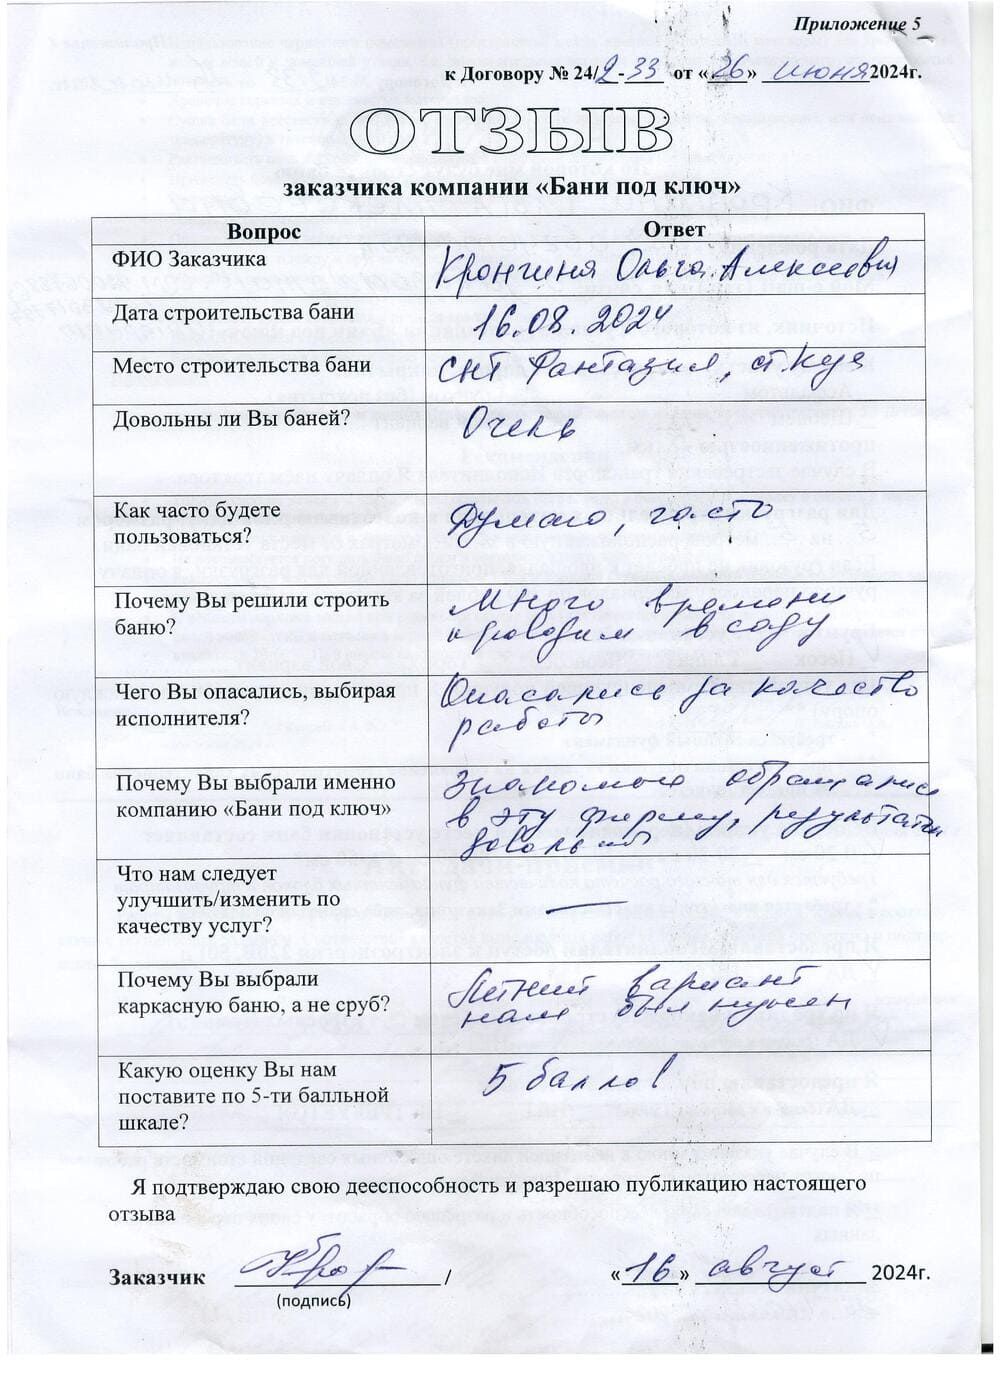 Приложение 5
к Договору № 24/2-33 от «26» июня 2024г.
ОТЗЫВ
заказчика компании «Бани под ключ»
Вопрос Ответ
ФИО Заказчика Ольга Алексеевна
Дата строительства бани 16.08.2024
Место строительства бани СНТ Фантазия, ст. Куя
Довольны ли Вы баней? Очень
Как часто будете
пользоваться?
Думаю, часто
Почему Вы решили строить
баню?
Много времени
проводим в саду
Чего Вы опасались, выбирая
исполнителя?
Опасались за качество
работы
Почему Вы выбрали именно
компанию «Бани под ключ»
Знакомые обращались
в эту фирму, результатом
довольны
Что нам следует
улучшить/изменить по
качеству услуг?
—
Почему Вы выбрали
каркасную баню, а не сруб?
Летний вариант
нам был нужен
Какую оценку Вы нам
поставите по 5-ти балльной
шкале?
5 баллов
Я подтверждаю свою дееспособность и разрешаю публикацию настоящего
отзыва
Заказчик / «16» август 2024г.
(подпись)